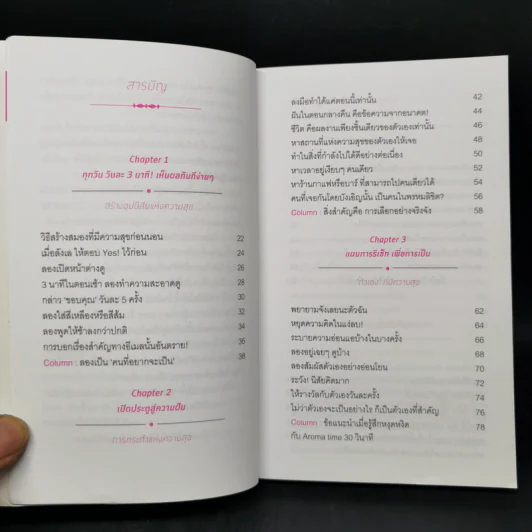 สารบัญ
Chapter 1
ทุกวัน วันละ 3 นาที! เห็นผลทันทีง่ายๆ
สร้างอุปนิสัยแห่งความสุข
วิธีสร้างสมองที่มีความสุขก่อนนอน 22
เมื่อลังเล ให้ตอบ Yes! ไว้ก่อน 24
ลองเปิดหน้าต่างดู 26
3 นาทีในตอนเช้า ลองทำความสะอาดดู 28
กล่าว 'ขอบคุณ' วันละ 5 ครั้ง 30
ลองใส่สีเหลืองหรือสีส้ม 32
ลองพูดให้ช้าลงกว่าปกติ 34
การบอกเรื่องสำคัญทางอีเมลนั้นอันตราย! 36
Column : ลองเป็น 'คนที่อยากจะเป็น' 38
Chapter 2
เปิดประตูสู่ความฝัน
แห่งความสุข
ลงมือทำได้แค่ตอนนี้เท่านั้น 42
ฝันในตอนกลางคืน คือข้อความจากอนาคต! 44
ชีวิต คือผลงานเพียงชิ้นเดียวของตัวเองเท่านั้น 46
หาสถานที่แห่งความสุขของตัวเองให้เจอ 48
ทำในสิ่งที่กำลังไปได้ดีอย่างต่อเนื่อง 50
หาเวลาอยู่เงียบๆ คนเดียว 52
หาร้านกาแฟหรือบาร์ ที่สามารถไปคนเดียวได้ 54
คนที่เจอกันโดยบังเอิญนั้น เป็นคนในพรหมลิขิต? 56
Column : สิ่งสำคัญคือ การเลือกอย่างจริงจัง 58
Chapter 3
แผนการรีเซ็ท เพื่อการเป็น
'ตัวเอง' ที่มีความสุข
พยายามจังเลยนะตัวฉัน 62
หยุดความคิดในแง่ลบ! 64
ระบายความอ่อนแอบ้างในบางครั้ง 66
ลองอยู่เฉยๆ ดูบ้าง 68
ลองสัมผัสตัวเองอย่างอ่อนโยน 70
ระวัง! นิสัยคิดมาก 72
ให้รางวัลกับตัวเองวันละครั้ง 74
ไม่ว่าตัวเองจะเป็นอย่างไร ก็เป็นตัวเองที่สำคัญ 76
Column : ข้อแนะนำเมื่อรู้สึกหงุดหงิด 78
กับ Aroma time 30 วินาที